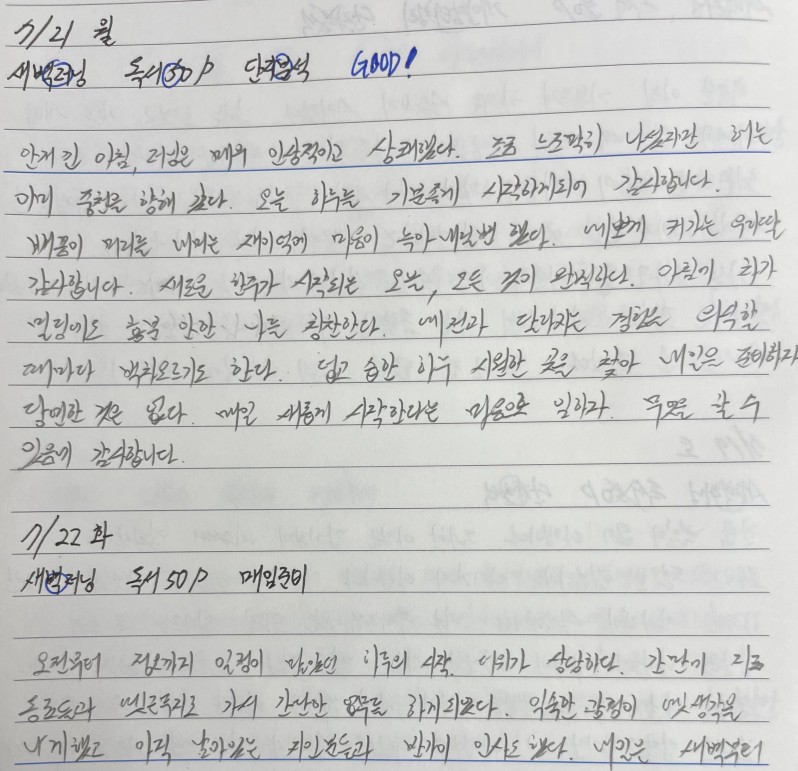 7/21 월
새벽러닝 독서 50P 단전음석 GOOD!
안개 낀 아침, 러닝은 매우 인상적이고 상쾌했다. 조금 느즈막히 나섰더라면 해는
이미 중천을 향해 갔다. 오늘 하루를 기분좋게 시작하게되어 감사합니다.
배웅이 머리를 내미는 재이덕에 마음이 녹아내릴번 했다. 예쁘게 커가는 우리딸
감사합니다. 새로운 한주가 시작되는 오늘, 모든 것이 완벽하다. 아침에 화가
밀림에도 흥분 안한 나를 칭찬한다. 예전과 달라지는 점들을 의식할
때마다 벅차오르기도 한다. 덥고 습한 하루 시원한 곳을 찾아 내일을 준비하자
당연한 것은 없다. 매일 새롭게 시작한다는 마음으로 일하자. 무엇을 할 수
있음에 감사합니다.
7/22 화
새벽러닝 독서 50P 매임준비
오전부터 점심까지 일정이 많았던 하루의 시작. 더위가 상당하다. 간만에
동료들과 옛근무지로 가서 간단한 업무를 하게되었다. 익숙한 광경이 옛생각을
나게했고 아직 남아있는 지인분들과 반가이 인사도 했다. 내일은 새벽부터